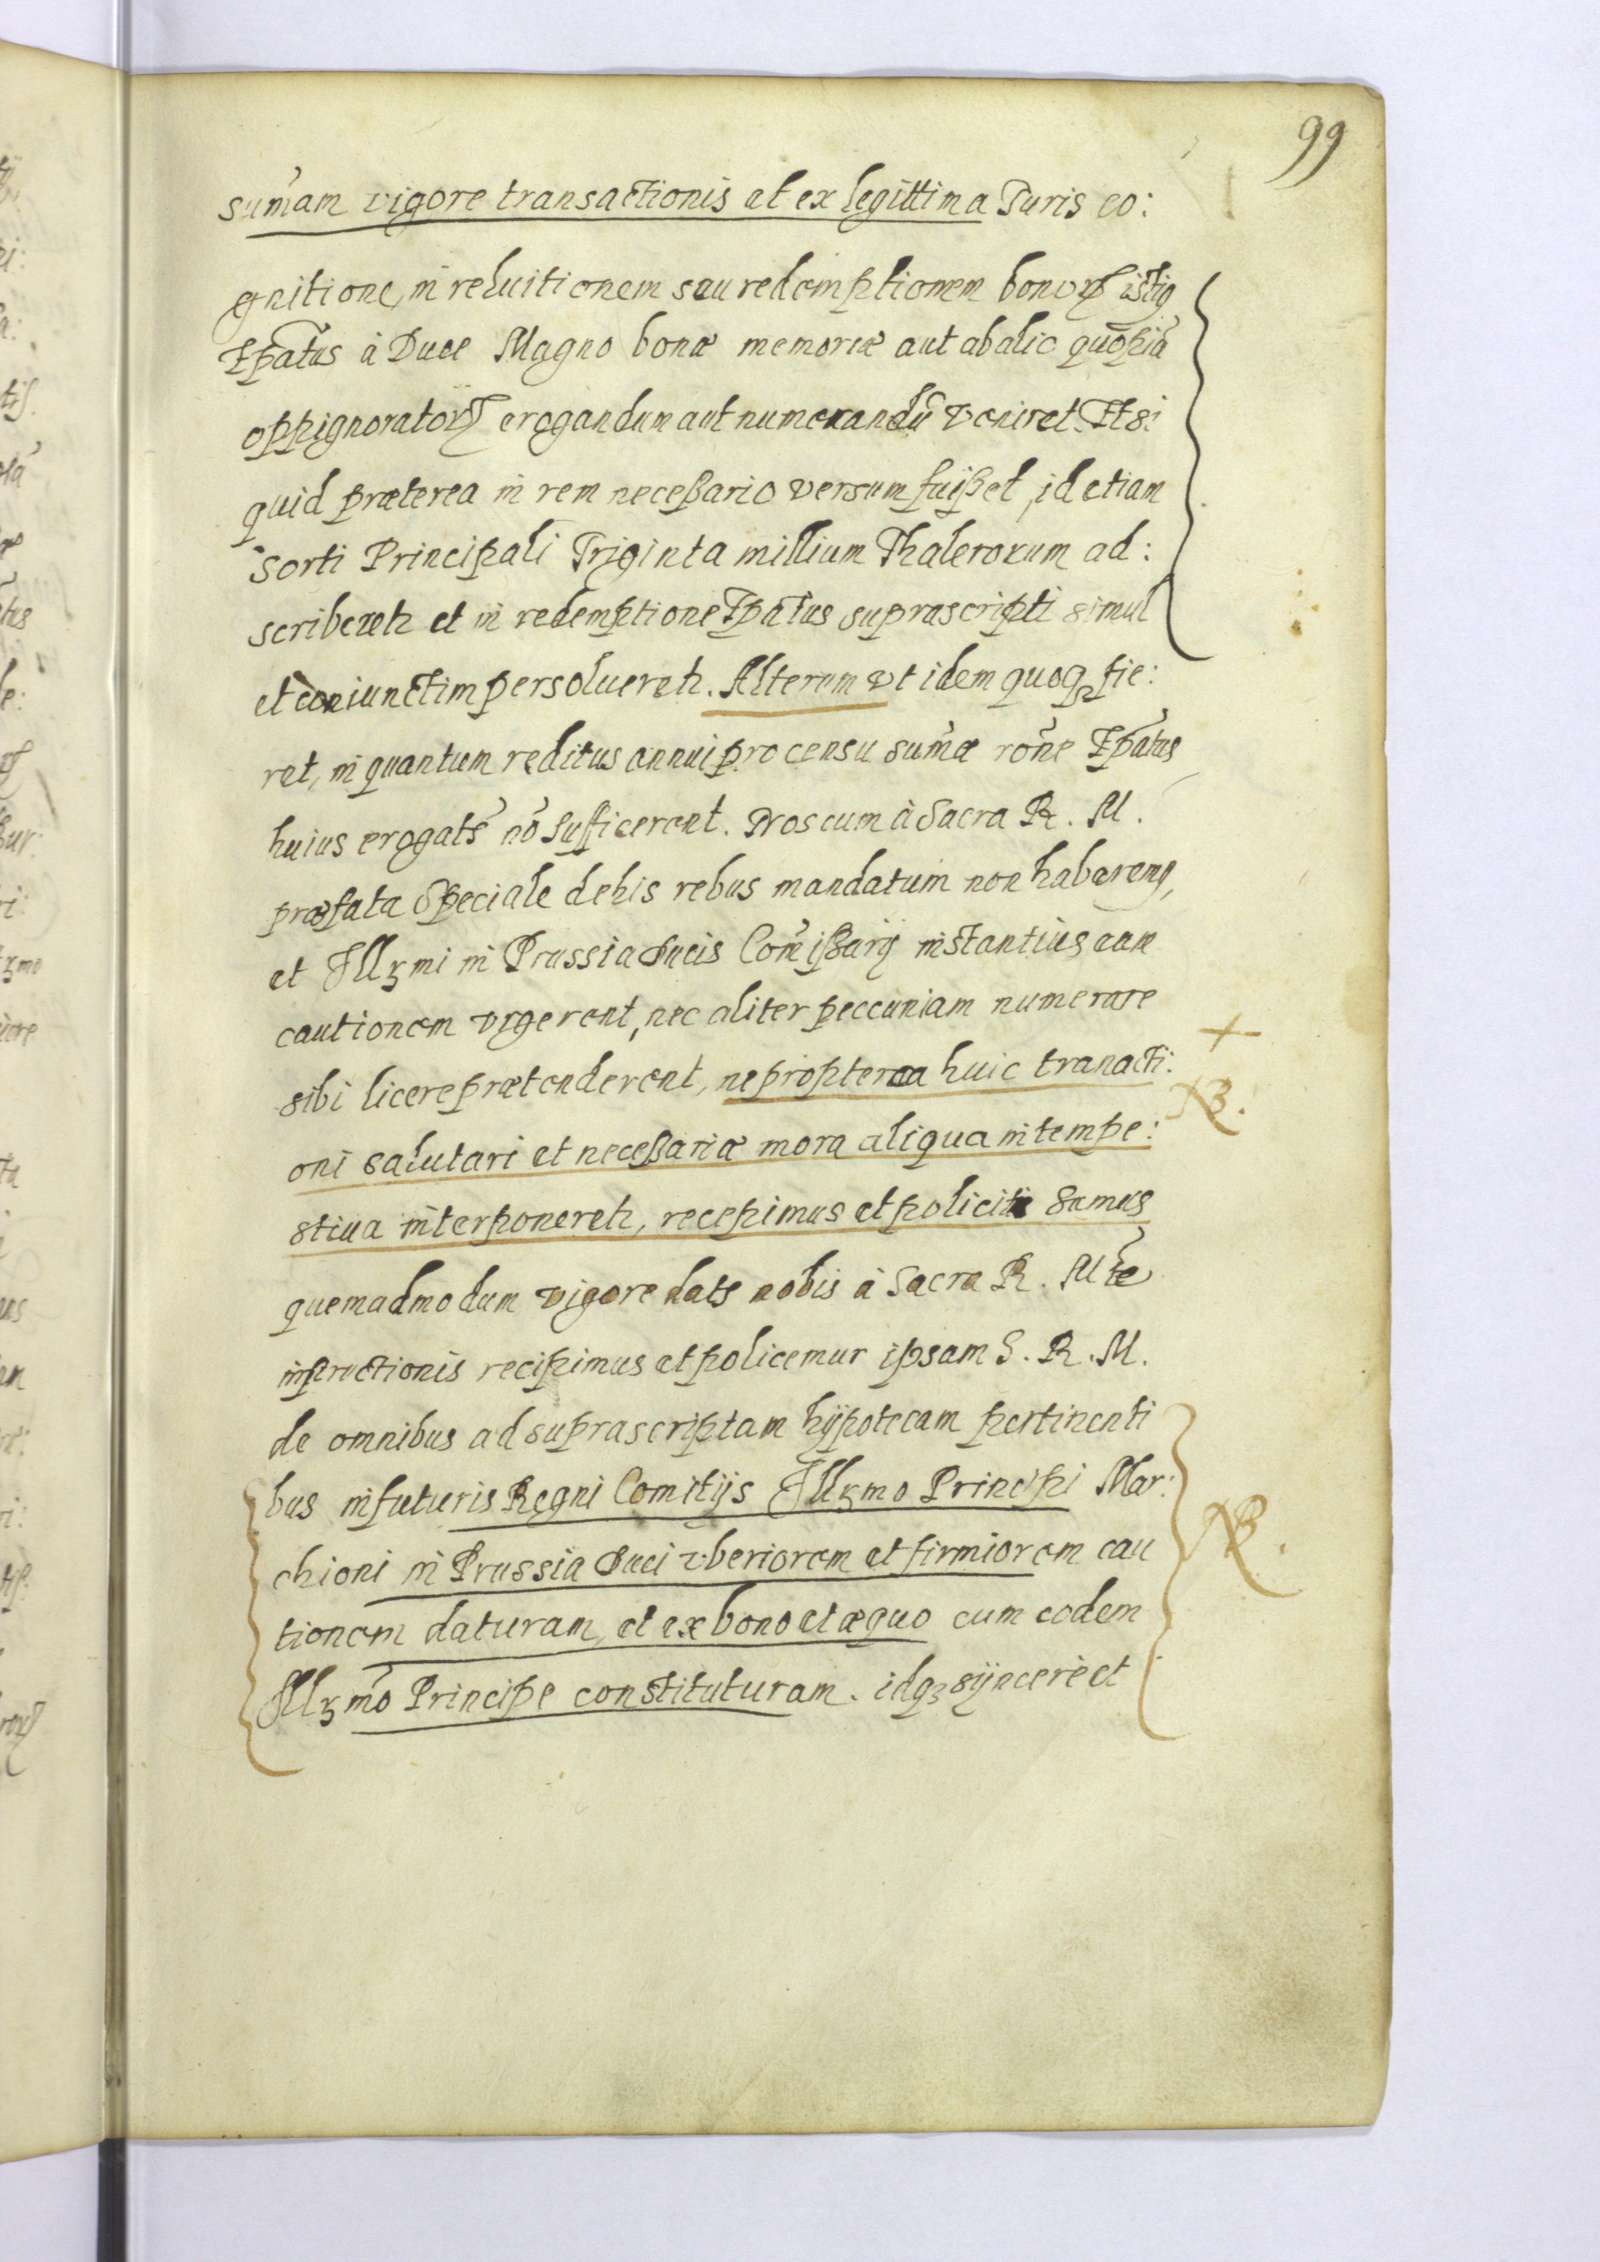 99
sum̃am vigore transactionis et ex legittima Iuris co:
gnitione, in reluitionem seu redemptionem bonorꝝ istiꝯ
Ep̃atus à Duce Magno bonæ memoriæ aut ab alio quõpiã
oppignoratorꝝ erogandum aut numerandũ veniret. Et si
quid præterea in rem necessario versum fuisset, id etiam
Sorti Principali Triginta millium Thalerorum ad:
scriberetr et in redemptione Ep̃atus suprascripti simul
et coniunctim persolueretr. Alterum vt idem quoqꝫ fie:
ret, in quantum reditus annui pro censu sum̃æ rõne Ep̃atus
huius erogatę nõ sufficerent. Nos cum à Sacra R. M.
præfata speciale de his rebus mandatum non haberemꝯ,
et Illꝫmi in Prussia Ducis Com̃issarij instantius eam
cautionem vrgerent, nec aliter peccuniam numerare
sibi licere prætenderent, ne propterea huic tranacti:
oni salutari et necessariæ mora aliqua intempe:
stiua interponeretr, recepimus et policiti sumus
quemadmodum vigore datę nobis à Sacra R. Mt̃e
instructionis recipimus et policemur ipsam S. R. M.
de omnibus ad suprascriptam hÿpotecam pertinenti
bus in futuris Regni Comitijs Illꝫmo Principi Mar:
chioni in Prussia Duci vberiorem et firmiorem cau
tionem daturam, et ex bono et æquo cum eodem
Illꝫmo Principe constituturam. idqꝫ sÿncerè et
+
NB.
NB.